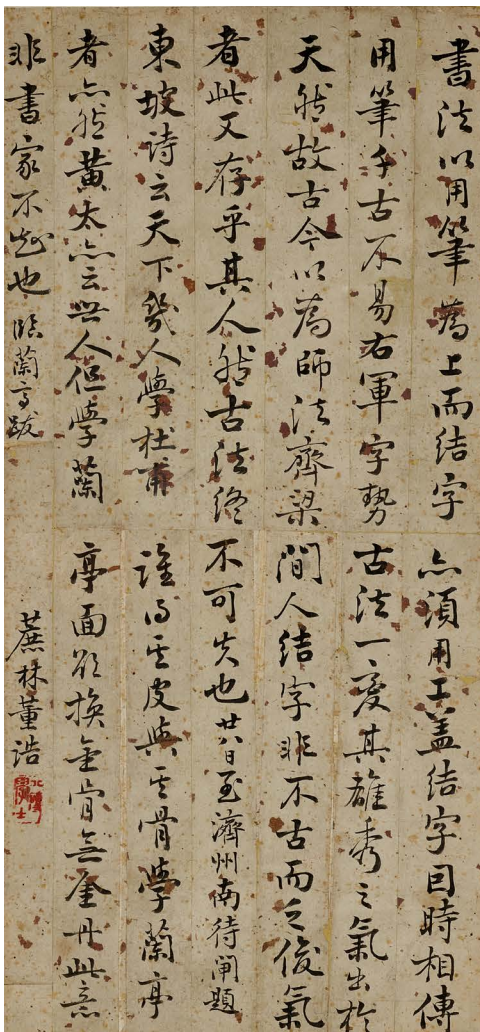 書法以用筆為上而結字亦須用工蓋結字因時相傳
用筆千古不易右軍字勢古法一變其雄秀之氣出於
天然故古今以為師法齊梁間人結字非不古而乏俊氣
者此又存乎其人然古法終不可失也廿八日至濟州南待閘題
東坡詩云天下幾人學杜甫誰得其皮與其骨學蘭亭
者亦然黃太亦云世人但學蘭亭面欲換金骨無金丹此意
非書家不知也臨蘭亭跋
蔗林董浩